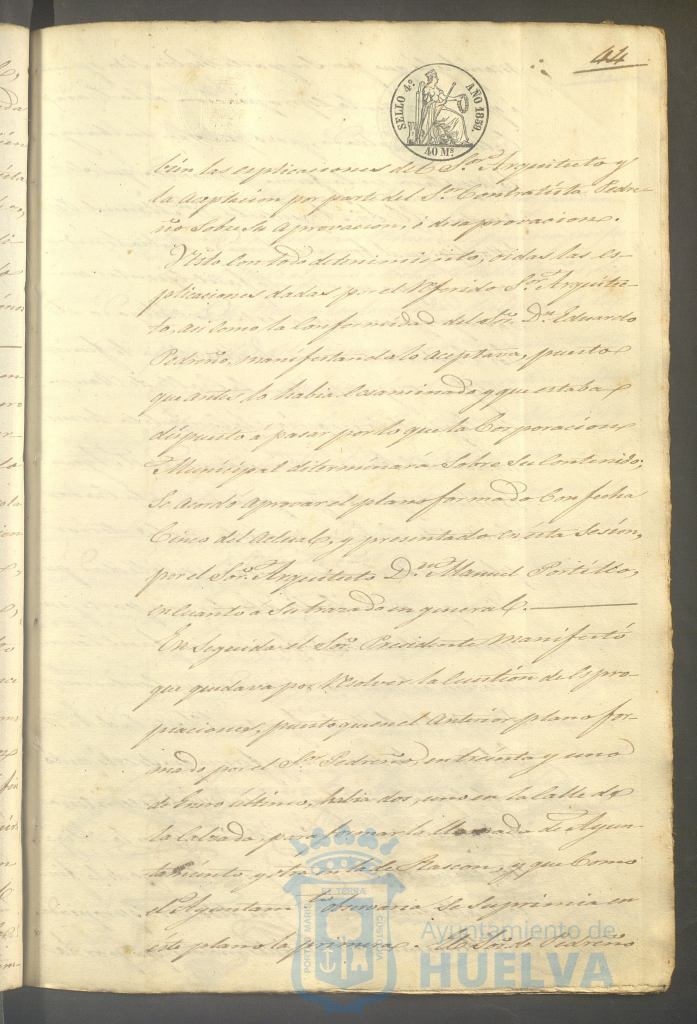 44
SELLO 4º AÑO 1859.
40 Ms
bún las esplicaciones del Sor. Arquitecto y
la aceptacion por parte del Sr. Contratista Pedre-
ño sobre su aprovacion, ó desaprovacion.
Visto con todo detenimiento, oidas las es-
plicaciones dadas por el referido Sor. Arquitec-
to, asi como la conformidad del Sor. Dn. Eduardo
Pedreño, manifestando lo aceptava, puesto
que antes lo habia esaminado y que estaba
dispuesto á pasar por lo que la Corporacion
Municipal determinara sobre su contenido;
se acordó aprovar el plano formado con fecha
Cinco del actual, y presentado en esta sesion,
por el Sor. Arquitecto Dn. Manuel Portillo,
en cuanto á su trazado en general.
En seguida el Sor. Presidente manifestó
que quedava por resolver la cuestion de espro-
piaciones, puesto que en el anterior plano for-
mado por el Sr. Pedreño, en treinta y uno
de Enero último, habia dos, uno en la Calle de
la Calzada para formar la llamada de Ayun-
tamiento y otra en la de Rascon, y que como
el Ayuntam.to observaria se suprimia en
este plano la primera. El Sor. de Pedreño
PORTUS MARIS ET TERRÆ CUSTODIA
Ayuntamiento de
HUELVA